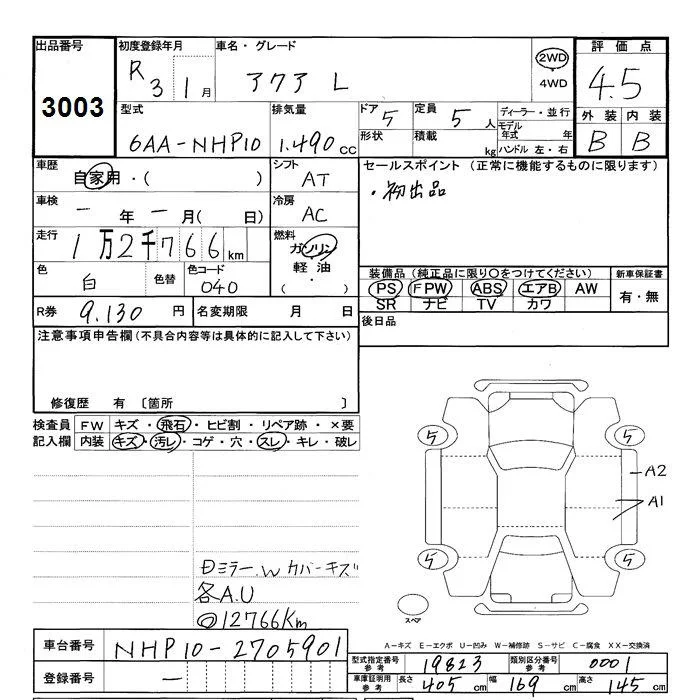 出品番号
3003
初度登録年月
R 3 1 月
車名・グレード
アクア L
2WD
4WD
評価点
4.5
外装 内装
B B
型式
6AA-NHP10
排気量
1.490 CC
ドア 5
形状
定員 5 人
積載 kg
ディーラー・並行
モデル年式 年
ハンドル 左・右
車歴
自家用・( )
シフト
AT
セールスポイント (正常に機能するものに限ります)
・初出品
車検
一 年 一 月( 日)
冷房
AC
走行
1万2千766km
燃料
ガソリン
軽油
( )
色
白
色替
色コード
040
装備品 (純正品に限り○をつけてください)
PS FPW ABS エアB AW
SR ナビ TV カワ
新車保証書
有・無
R券 9.130 円
名変期限 月 日
後日品
注意事項申告欄(不具合内容等は具体的に記入して下さい)
修復歴 有 〔箇所 〕
検査員記入欄
FW キズ・飛石・ヒビ割・リペア跡・×要
内装 キズ・汚レ・コゲ・穴・スレ・キレ・破レ
ミラー.W カバーキズ
各A.U
◎12766Km
5 5
A2
A1
5 5
スペア
A-キズ E-エクボ U-凹み W-補修跡 S-サビ C-腐食 XX-交換済
車台番号 NHP10-2705901
登録番号 一
型式指定番号 参考 19823
類別区分番号 参考 0001
車庫証明用 参考 長さ 405 cm 幅 169 cm 高さ 145 cm